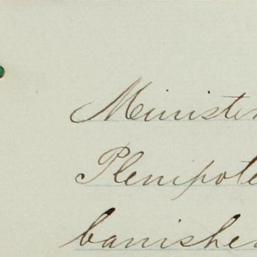 Minister
Plenipote
banishe